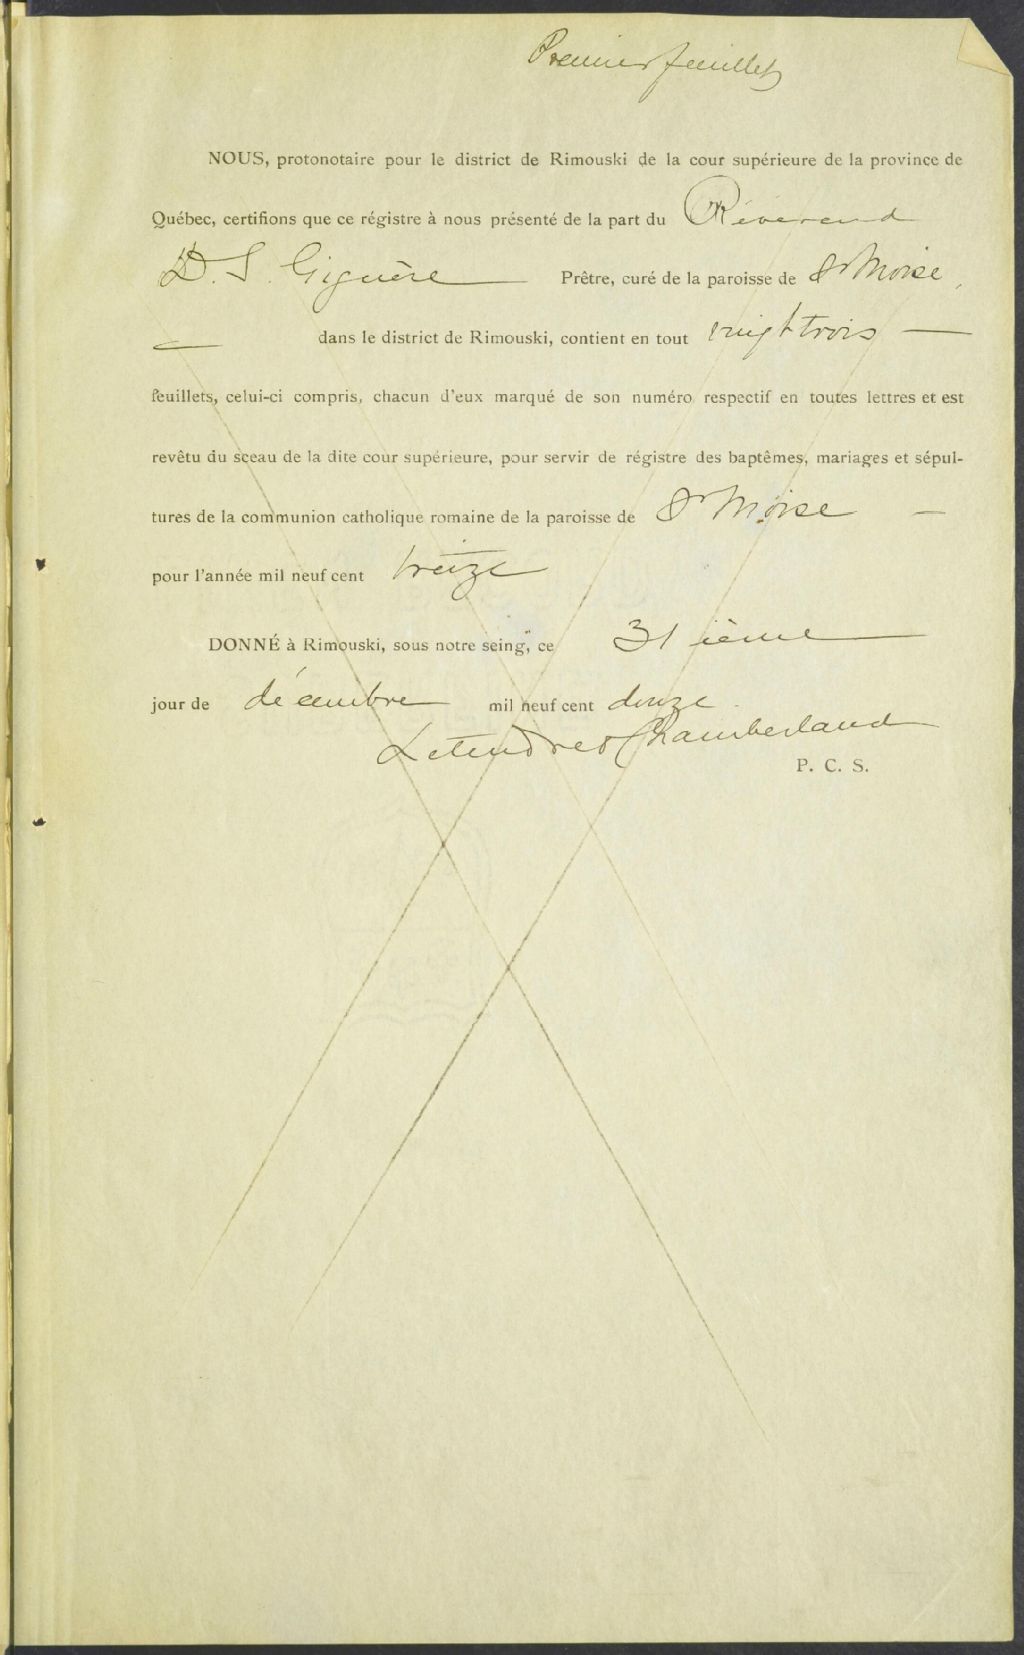 Premier feuillet
NOUS, protonotaire pour le district de Rimouski de la cour supérieure de la province de
Québec, certifions que ce régistre à nous présenté de la part du Révérend
D. S. Giguère Prêtre, curé de la paroisse de St Moïse,
— dans le district de Rimouski, contient en tout vingt trois —
feuillets, celui-ci compris, chacun d'eux marqué de son numéro respectif en toutes lettres et est
revêtu du sceau de la dite cour supérieure, pour servir de régistre des baptêmes, mariages et sépul-
tures de la communion catholique romaine de la paroisse de St Moïse —
pour l'année mil neuf cent treize
DONNÉ à Rimouski, sous notre seing, ce 31 ième
jour de décembre mil neuf cent douze
Letendre & Chamberland
P. C. S.